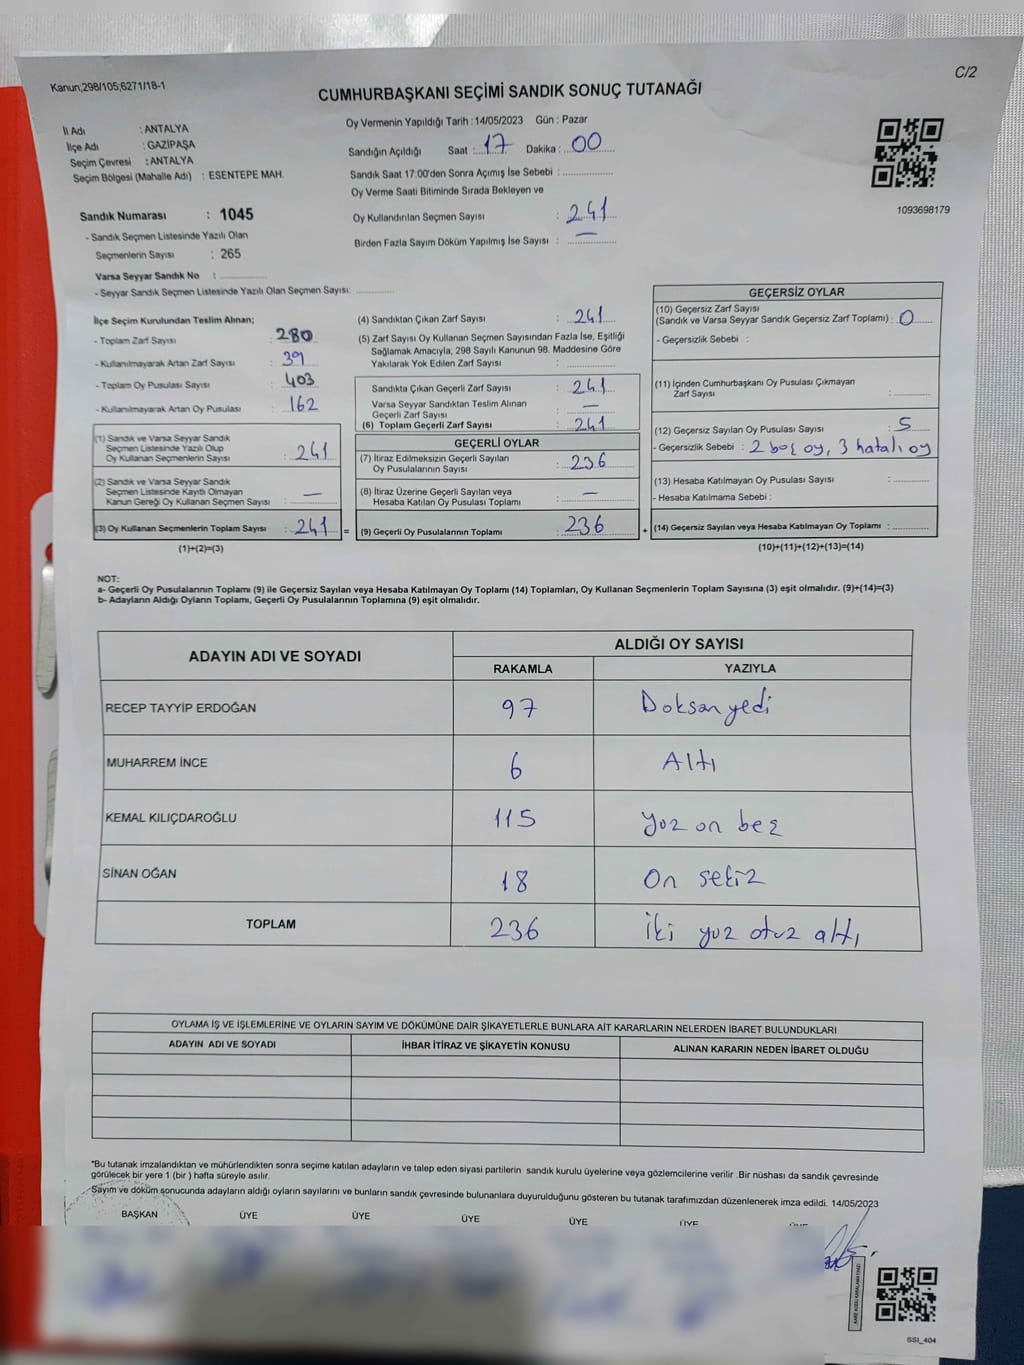 Kanun;298/105;6271/18-1
C/2
CUMHURBAŞKANI SEÇİMİ SANDIK SONUÇ TUTANAĞI
İl Adı : ANTALYA
İlçe Adı : GAZİPAŞA
Seçim Çevresi : ANTALYA
Seçim Bölgesi (Mahalle Adı) : ESENTEPE MAH.
Sandık Numarası : 1045
- Sandık Seçmen Listesinde Yazılı Olan
Seçmenlerin Sayısı : 265
Varsa Seyyar Sandık No : ..............
- Seyyar Sandık Seçmen Listesinde Yazılı Olan Seçmen Sayısı: ............
Oy Vermenin Yapıldığı Tarih : 14/05/2023 Gün : Pazar
Sandığın Açıldığı Saat : 17 Dakika : 00
Sandık Saat 17:00'den Sonra Açımış İse Sebebi : ..............
Oy Verme Saati Bitiminde Sırada Bekleyen ve
Oy Kullandırılan Seçmen Sayısı : 241
Birden Fazla Sayım Döküm Yapılmış İse Sayısı : —
1093698179
İlçe Seçim Kurulundan Teslim Alınan;
- Toplam Zarf Sayısı : 280
- Kullanılmayarak Artan Zarf Sayısı : 39
- Toplam Oy Pusulası Sayısı : 403
- Kullanılmayarak Artan Oy Pusulası : 162
(1) Sandık ve Varsa Seyyar Sandık
Seçmen Listesinde Yazılı Olup
Oy Kullanan Seçmenlerin Sayısı : 241
(2) Sandık ve Varsa Seyyar Sandık
Seçmen Listesinde Kayıtlı Olmayan
Kanun Gereği Oy Kullanan Seçmen Sayısı : —
(3) Oy Kullanan Seçmenlerin Toplam Sayısı : 241 =
(1)+(2)=(3)
(4) Sandıktan Çıkan Zarf Sayısı : 241
(5) Zarf Sayısı Oy Kullanan Seçmen Sayısından Fazla İse, Eşitliği
Sağlamak Amacıyla; 298 Sayılı Kanunun 98. Maddesine Göre
Yakılarak Yok Edilen Zarf Sayısı : ..............
Sandıkta Çıkan Geçerli Zarf Sayısı : 241
Varsa Seyyar Sandıktan Teslim Alınan
Geçerli Zarf Sayısı : —
(6) Toplam Geçerli Zarf Sayısı : 241
GEÇERLİ OYLAR
(7) İtiraz Edilmeksizin Geçerli Sayılan
Oy Pusulalarının Sayısı : 236
(8) İtiraz Üzerine Geçerli Sayılan veya
Hesaba Katılan Oy Pusulası Toplamı : —
(9) Geçerli Oy Pusulalarının Toplamı : 236 +
GEÇERSİZ OYLAR
(10) Geçersiz Zarf Sayısı
(Sandık ve Varsa Seyyar Sandık Geçersiz Zarf Toplamı) : 0
- Geçersizlik Sebebi :
(11) İçinden Cumhurbaşkanı Oy Pusulası Çıkmayan
Zarf Sayısı : ............
(12) Geçersiz Sayılan Oy Pusulası Sayısı : 5
- Geçersizlik Sebebi : 2 boş oy, 3 hatalı oy
(13) Hesaba Katılmayan Oy Pusulası Sayısı : ............
- Hesaba Katılmama Sebebi :
(14) Geçersiz Sayılan veya Hesaba Katılmayan Oy Toplamı : ............
(10)+(11)+(12)+(13)=(14)
NOT:
a- Geçerli Oy Pusulalarının Toplamı (9) ile Geçersiz Sayılan veya Hesaba Katılmayan Oy Toplamı (14) Toplamları, Oy Kullanan Seçmenlerin Toplam Sayısına (3) eşit olmalıdır. (9)+(14)=(3)
b- Adayların Aldığı Oyların Toplamı, Geçerli Oy Pusulalarının Toplamına (9) eşit olmalıdır.
ADAYIN ADI VE SOYADI
ALDIĞI OY SAYISI
RAKAMLA YAZIYLA
RECEP TAYYİP ERDOĞAN 97 Doksan yedi
MUHARREM İNCE 6 Altı
KEMAL KILIÇDAROĞLU 115 yuz on beş
SİNAN OĞAN 18 On sekiz
TOPLAM 236 iki yuz otuz altı
OYLAMA İŞ VE İŞLEMLERİNE VE OYLARIN SAYIM VE DÖKÜMÜNE DAİR ŞİKAYETLERLE BUNLARA AİT KARARLARIN NELERDEN İBARET BULUNDUKLARI
ADAYIN ADI VE SOYADI İHBAR İTİRAZ VE ŞİKAYETİN KONUSU ALINAN KARARIN NEDEN İBARET OLDUĞU
*Bu tutanak imzalandıktan ve mühürlendikten sonra seçime katılan adayların ve talep eden siyasi partilerin sandık kurulu üyelerine veya gözlemcilerine verilir .Bir nüshası da sandık çevresinde
görülecek bir yere 1 (bir ) hafta süreyle asılır.
Sayım ve döküm sonucunda adayların aldığı oyların sayılarını ve bunların sandık çevresinde bulunanlara duyurulduğunu gösteren bu tutanak tarafımızdan düzenlenerek imza edildi. 14/05/2023
BAŞKAN ÜYE ÜYE ÜYE ÜYE ÜYE ÜYE
SSI_404